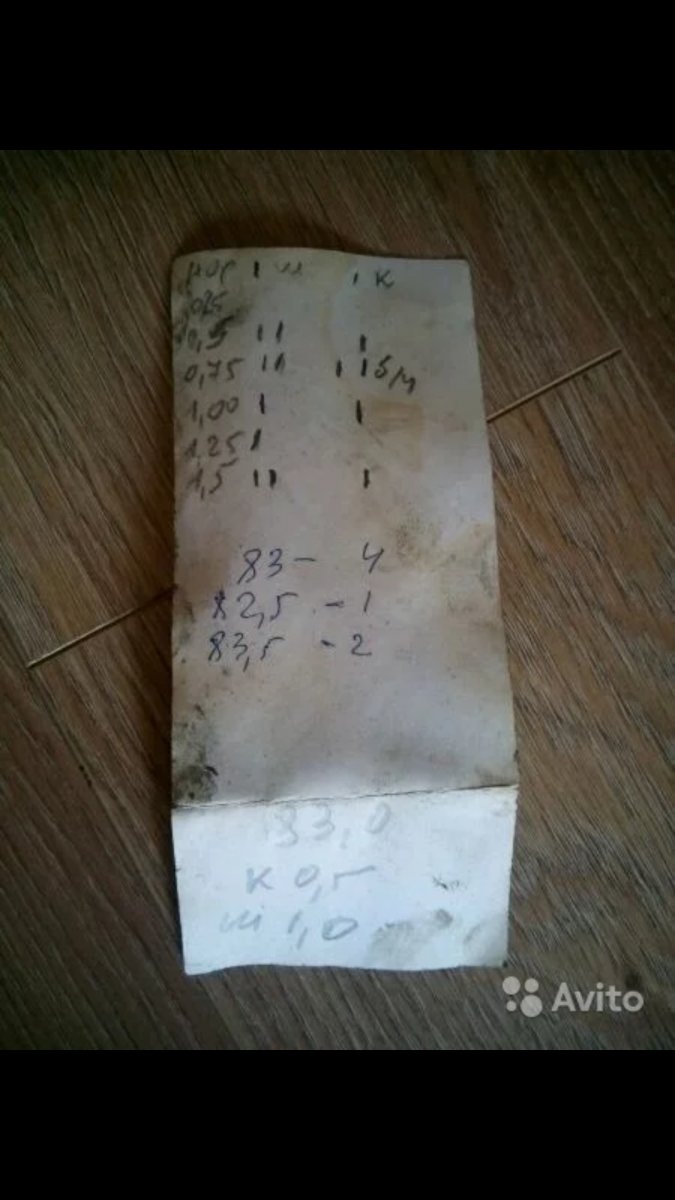 нор ш к
0,25
0,5
0,75 б/м
1,00
1,25
1,5
83 - 4
82,5 - 1
83,5 - 2
83,0
к 0,5
ш 1,0
Avito